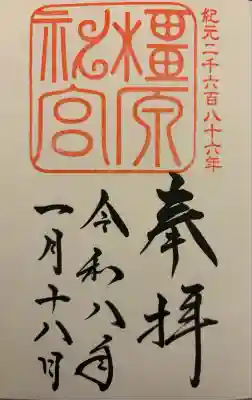 紀元二千六百八十六年
橿原
神宮
奉拝
令和八年
一月十八日